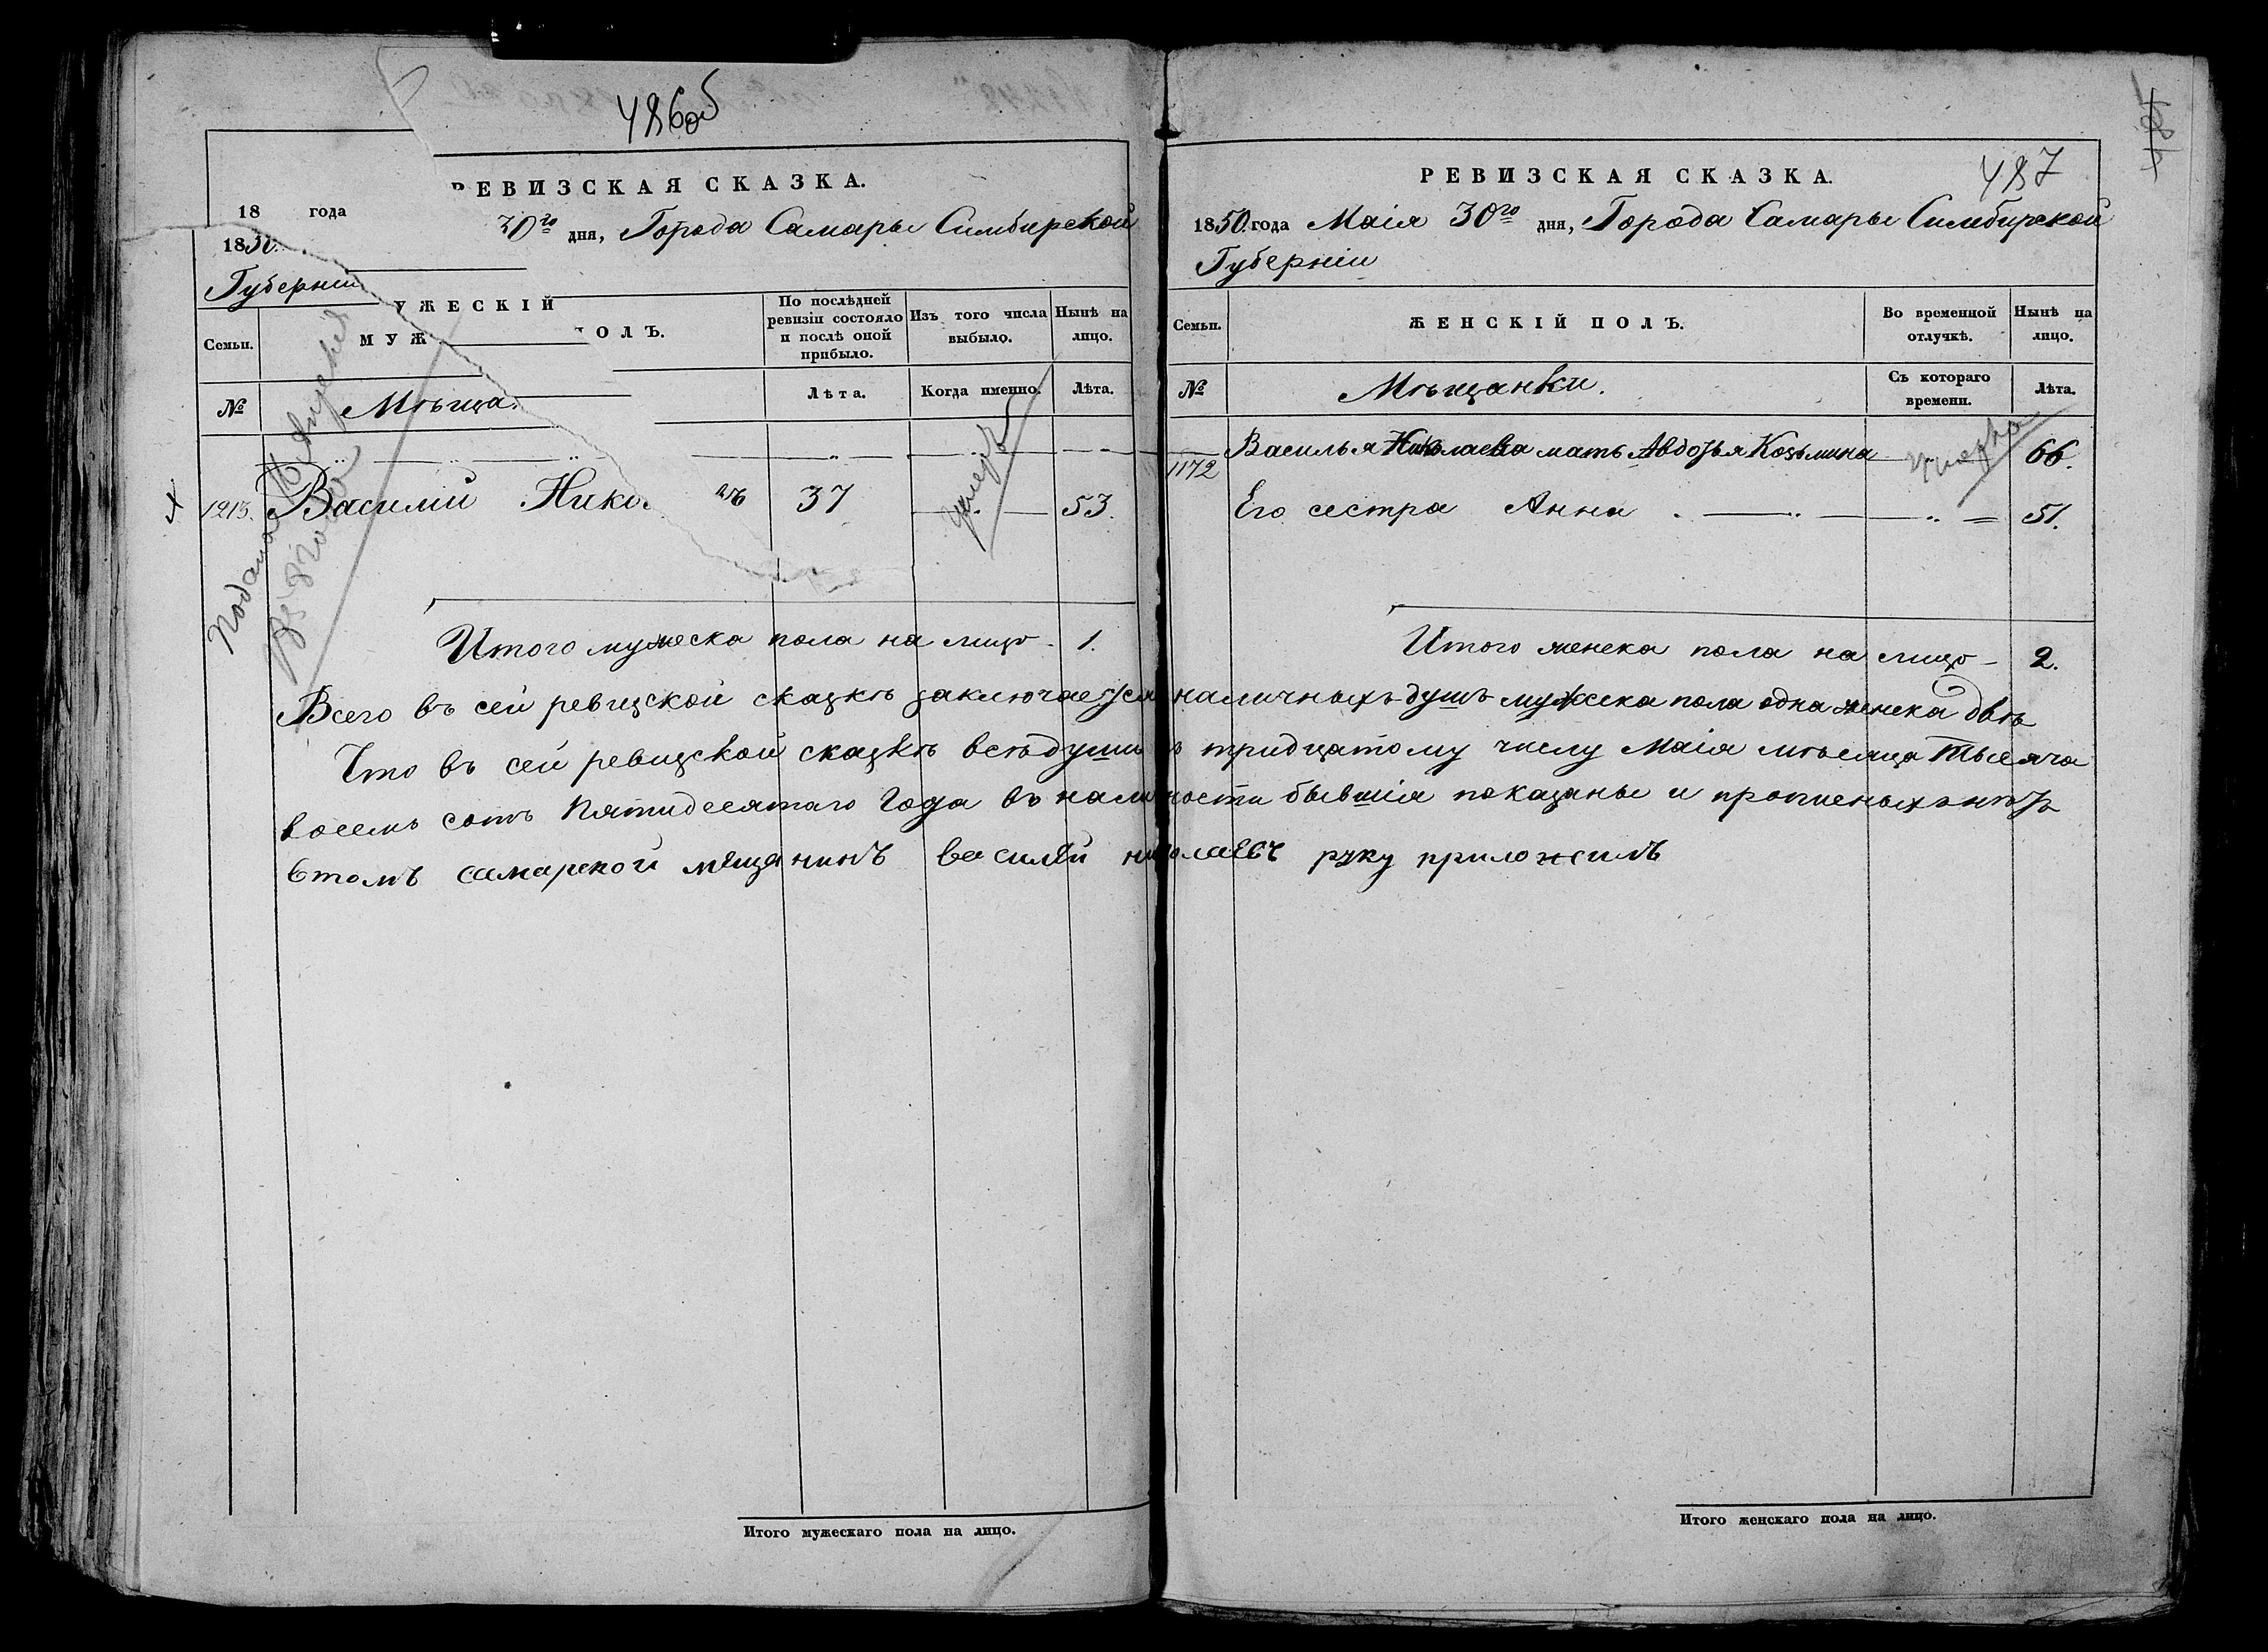 486об
РЕВИЗСКАЯ СКАЗКА.
18 года
1850 30го дня, Города Самары Симбирской
Губерніи
УЖЕСКІЙ
Семьи.
МУЖ
ОЛЪ.
По послѣдней ревизіи состояло и послѣ оной прибыло.
Изъ того числа выбыло.
Нынѣ на лицо.
№
Мѣща
Лѣта.
Когда именно.
Лѣта.
1213. Василій Нико 37 умеръ 53.
Подана
Итого мужеска пола на лицо - 1.
487
РЕВИЗСКАЯ СКАЗКА.
1850 года Маія 30го дня, Города Самары Симбирской
Губерніи
Семьи.
ЖЕНСКІЙ ПОЛЪ.
Во временной отлучкѣ.
Нынѣ на лицо.
№
Мѣщанки.
Съ котораго времени.
Лѣта.
1172 Василья Николаева мать Авдотья Козьмина 66.
Его сестра Анна 51.
Итого женска пола на лицо - 2.
Всего въ сей ревизской сказкѣ заключается наличныхъ душъ мужеска пола одна женска двѣ
Что въ сей ревизской сказкѣ всѣ души къ тридцатому числу Маія мѣсяца Тысяча
восемь сотъ Пятидесятаго Года въ наличности бывшія показаны и прописныхъ нѣтъ
втомъ самарской мещанинъ василей николаевъ руку приложилъ
Итого мужескаго пола на лицо.
Итого женскаго пола на лицо.